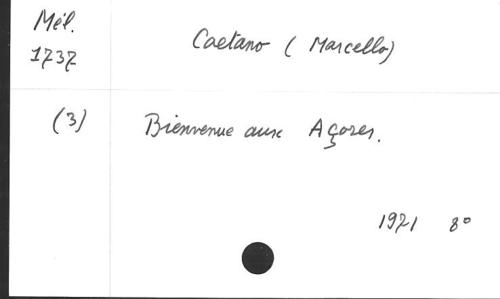 Mél.
1737
Caetano (Marcello)
(3)
Bienvenue aux Açores.
1971 8°